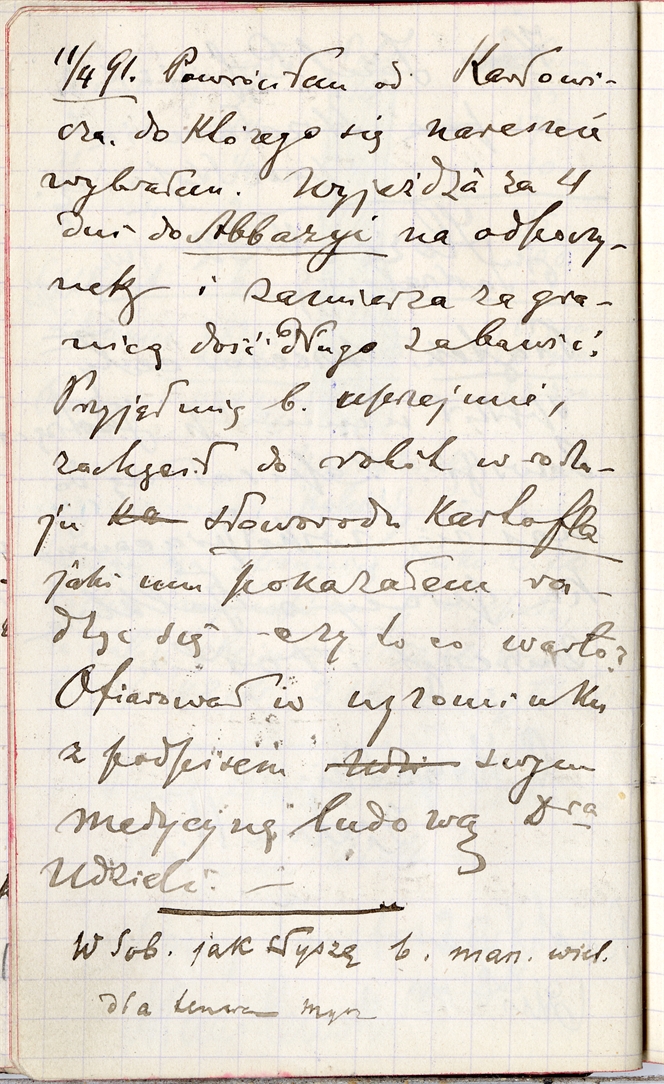 11/4 91. Powróciłem od Karłowi-
cza, do którego się nareszcie
wybrałem. Wyjeżdża za 4
dni do Abbazyi na odpoczy-
nek i zamierza za gra-
nicą dość długo zabawić.
Przyjął mię b. uprzejmie,
zachęcił do robót w rodza-
ju ka słoworodu Kartofla
jaki mu pokazałem ra-
dząc się czy to co warto?
Ofiarował w upominku
z podpisem Udzi swym
medycynę ludową Dra
Udzieli. —
W Sob. jak słyszę b. man. wiel.
dla